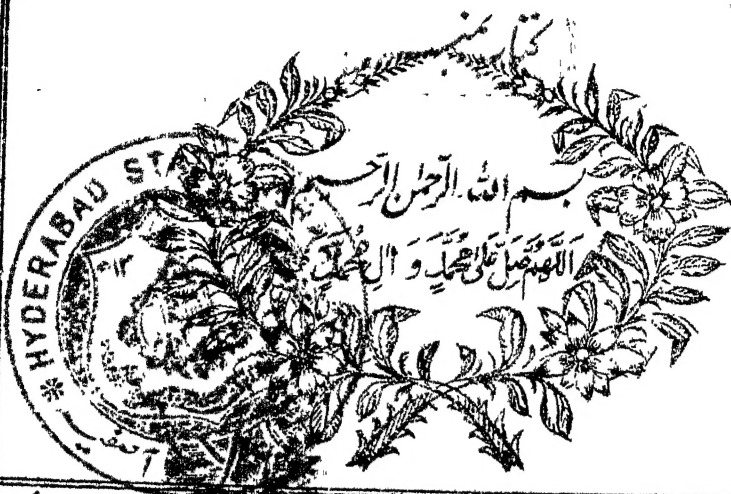 کتاب نمبر
بسم الله الرحمن الرحیم
اَللّٰهُمَّ صَلِّ عَلٰی مُحَمَّدٍ وَ اٰلِ مُحَمَّدٍ
HYDERABAD STA
آصفیہ